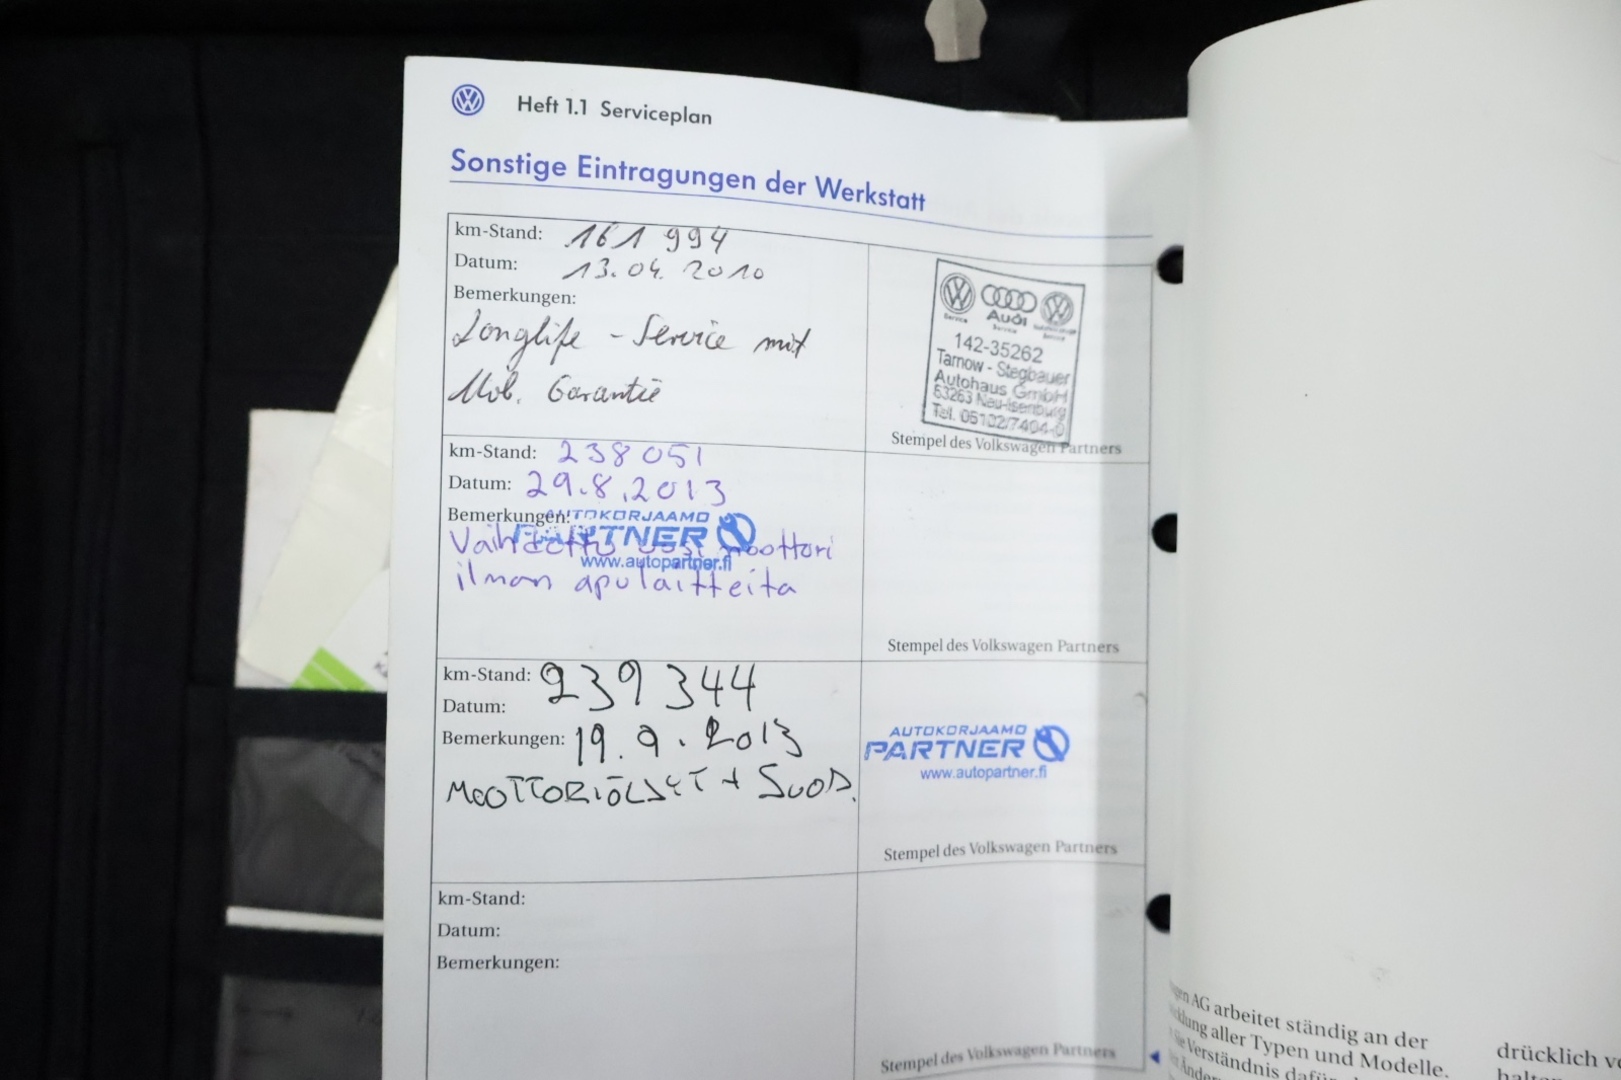 Heft 1.1 Serviceplan
Sonstige Eintragungen der Werkstatt
km-Stand: 161 994
Datum: 13.04. 2010
Bemerkungen:
Longlife - Service mit
Mob. Garantie
Audi
Service
142-35262
Tarnow - Stegbauer
Autohaus GmbH
63263 Neu-Isenburg
Stempel des Volkswagen Partners
km-Stand: 238 051
Datum: 29.8.2013
Bemerkungen:
AUTOKORJAAMO
PARTNER
www.autopartner.fi
Vaihdettu uusi moottori
ilman apulaitteita
Stempel des Volkswagen Partners
km-Stand: 239 344
Datum:
Bemerkungen: 19.9.2013
MOOTTORIÖLJYT + SUOD.
AUTOKORJAAMO
PARTNER
www.autopartner.fi
Stempel des Volkswagen Partners
km-Stand:
Datum:
Bemerkungen:
Stempel des Volkswagen Partners
AG arbeitet ständig an der
aller Typen und Modelle.
Verständnis
drücklich